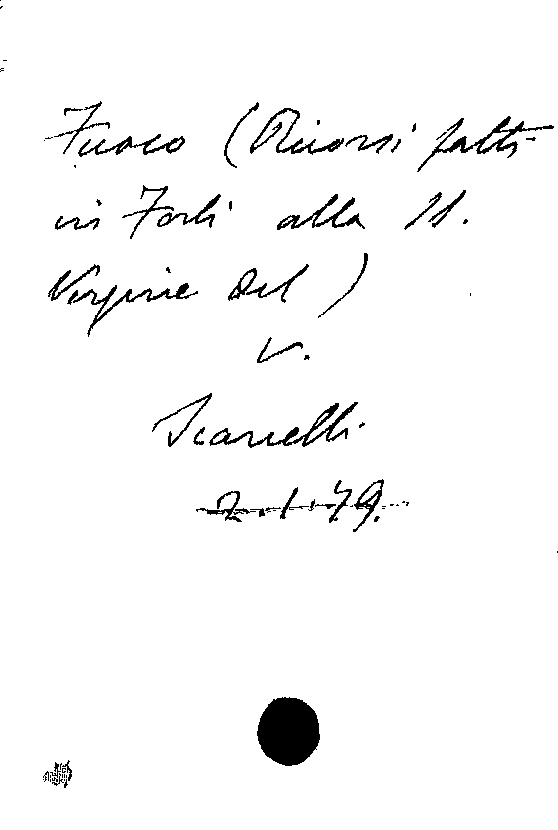 Fuoco (Ricorsi fatti
in Forlì alla SS.
Vergine del)
V.
Scarielli
2.1.79.